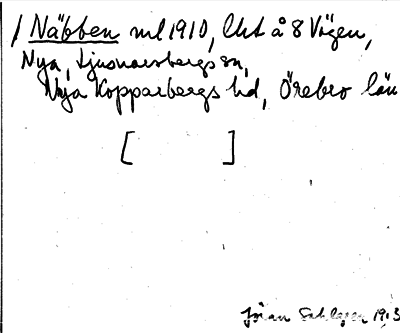 / Näbben ml 1910, Uxt å 8 Vägen,
Nya, Ljusnarsbergs sn,
Nya Kopparbergs hd, Örebro län
[ ]
Jöran Sahlgren 1913